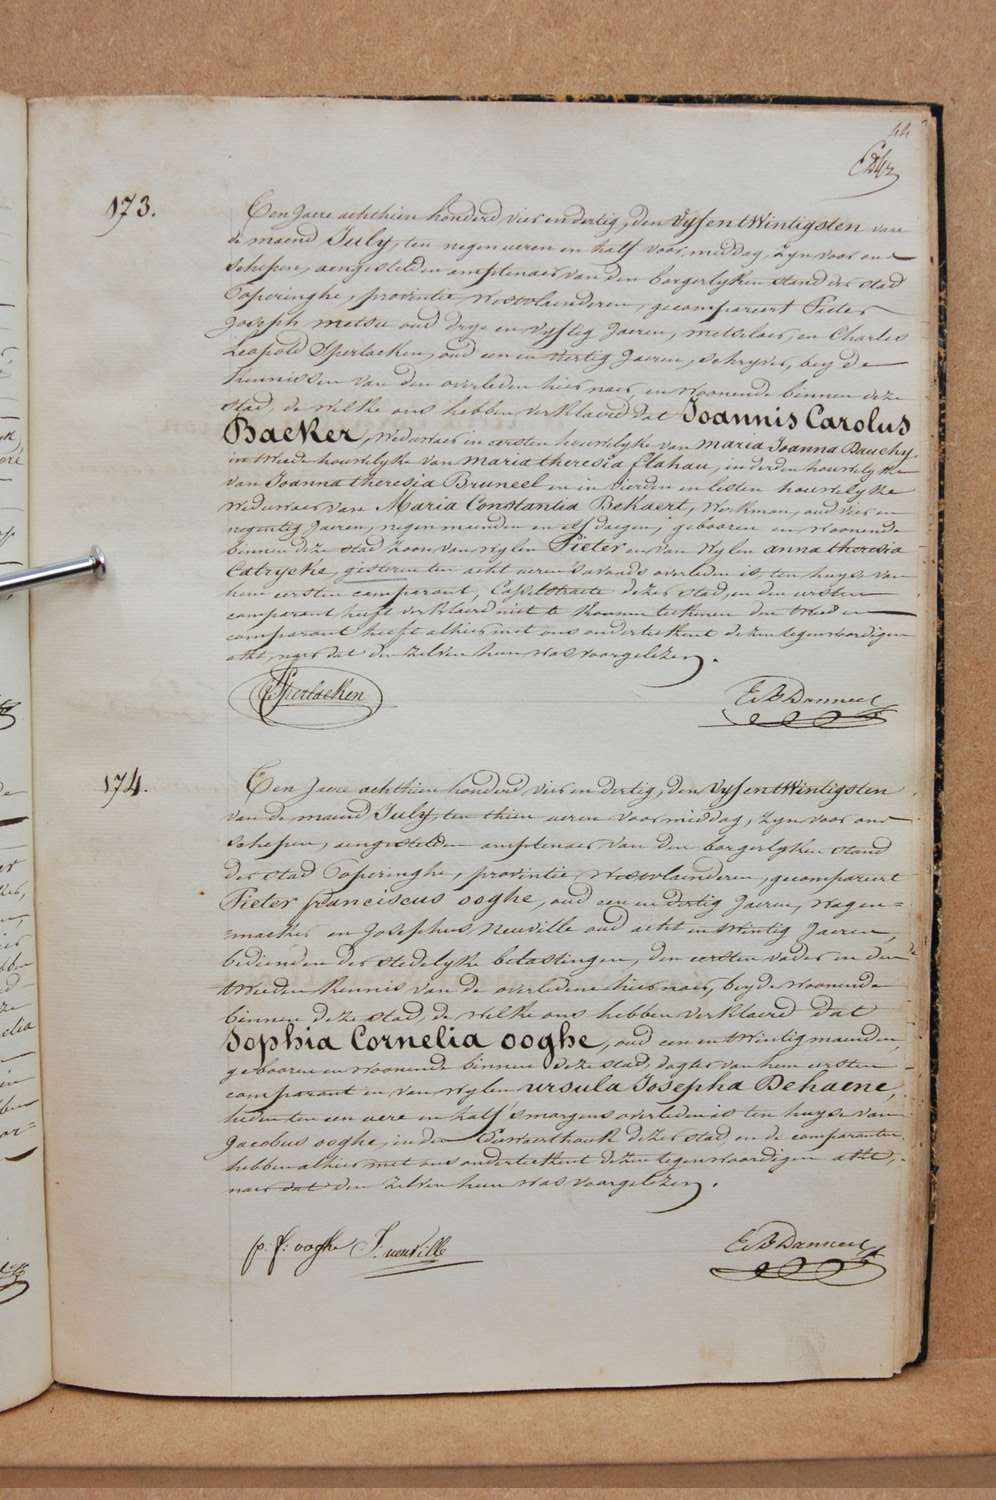 44
173.
Ten Jaere achthien honderd vier en dertig, den vyf en twintigsten van
de maend July, ten negen ueren en half voor middag, zyn voor ons
schepen, aengestelden amptenaer van den borgerlyken stand der stad
Poperinghe, provintie Westvlaenderen, gecompareert Pieter
Joseph Metsu oud drye en vyftig Jaeren, metselaer, en Charles
Leopold Sperlaeken, oud een en vertig Jaeren, schryver, beyde
kennissen van den overleden hier naer, en woonende binnen deze
stad, de welke ons hebben verklaerd dat Joannis Carolus
Backer, weduwaer in eersten houwelyke van Maria Joanna Bauchy,
in tweede houwelyke van Maria theresia flahau, in derden houwelyke
van Joanna theresia Bruneel en in vierden en lesten houwelyke
weduwaer van Maria Constantia Bekaert, Workman, oud vier en
negentig Jaeren, negen maenden en elf daegen, gebooren en woonende
binnen deze stad zoon van wylen Pieter en van wylen anna theresia
Catrycke, gisteren ten acht ueren s'avonds overleden is, ten huyse van
hem eersten comparant, Casselstraete dezer stad, en den eersten
comparant heeft verklaerd niet te konnen teekenen den tweeden
comparant heeft alhier met ons onderteekent dezen tegenwoordigen
akt, naer dat den zelven hun was voorgelezen.
Sperlaeken E. B. Danneel
174.
Ten Jaere achthien honderd vier en dertig, den vyf en twintigsten
van de maend July, ten thien ueren voor middag, zyn voor ons
schepen, aengestelden amptenaer van den borgerlyken stand
der stad Poperinghe, provintie Westvlaenderen, gecompareert
Pieter franciscus ooghe, oud een en dertig Jaeren, wagen=
=maeker en Josephus Neuville oud acht en twintig Jaeren,
bedienden der stedelyke belastingen, den eersten vader en den
tweeden kennis van de overledene hier naer, beyde woonende
binnen deze stad, de welke ons hebben verklaerd dat
Sophia Cornelia ooghe, oud een en twintig maenden,
gebooren en woonende binnen deze stad, dogter van hem eersten
comparant en van wylen ursula Josepha Dehaene,
heden ten een uere en half s'morgens overleden is ten huyse van
Jacobus ooghe, in den dezer stad, en de comparanten
hebben alhier met ons onderteekent dezen tegenwoordigen akt,
naer dat den zelven hun was voorgelezen.
p: f: ooghe J: neuville E. B. Danneel